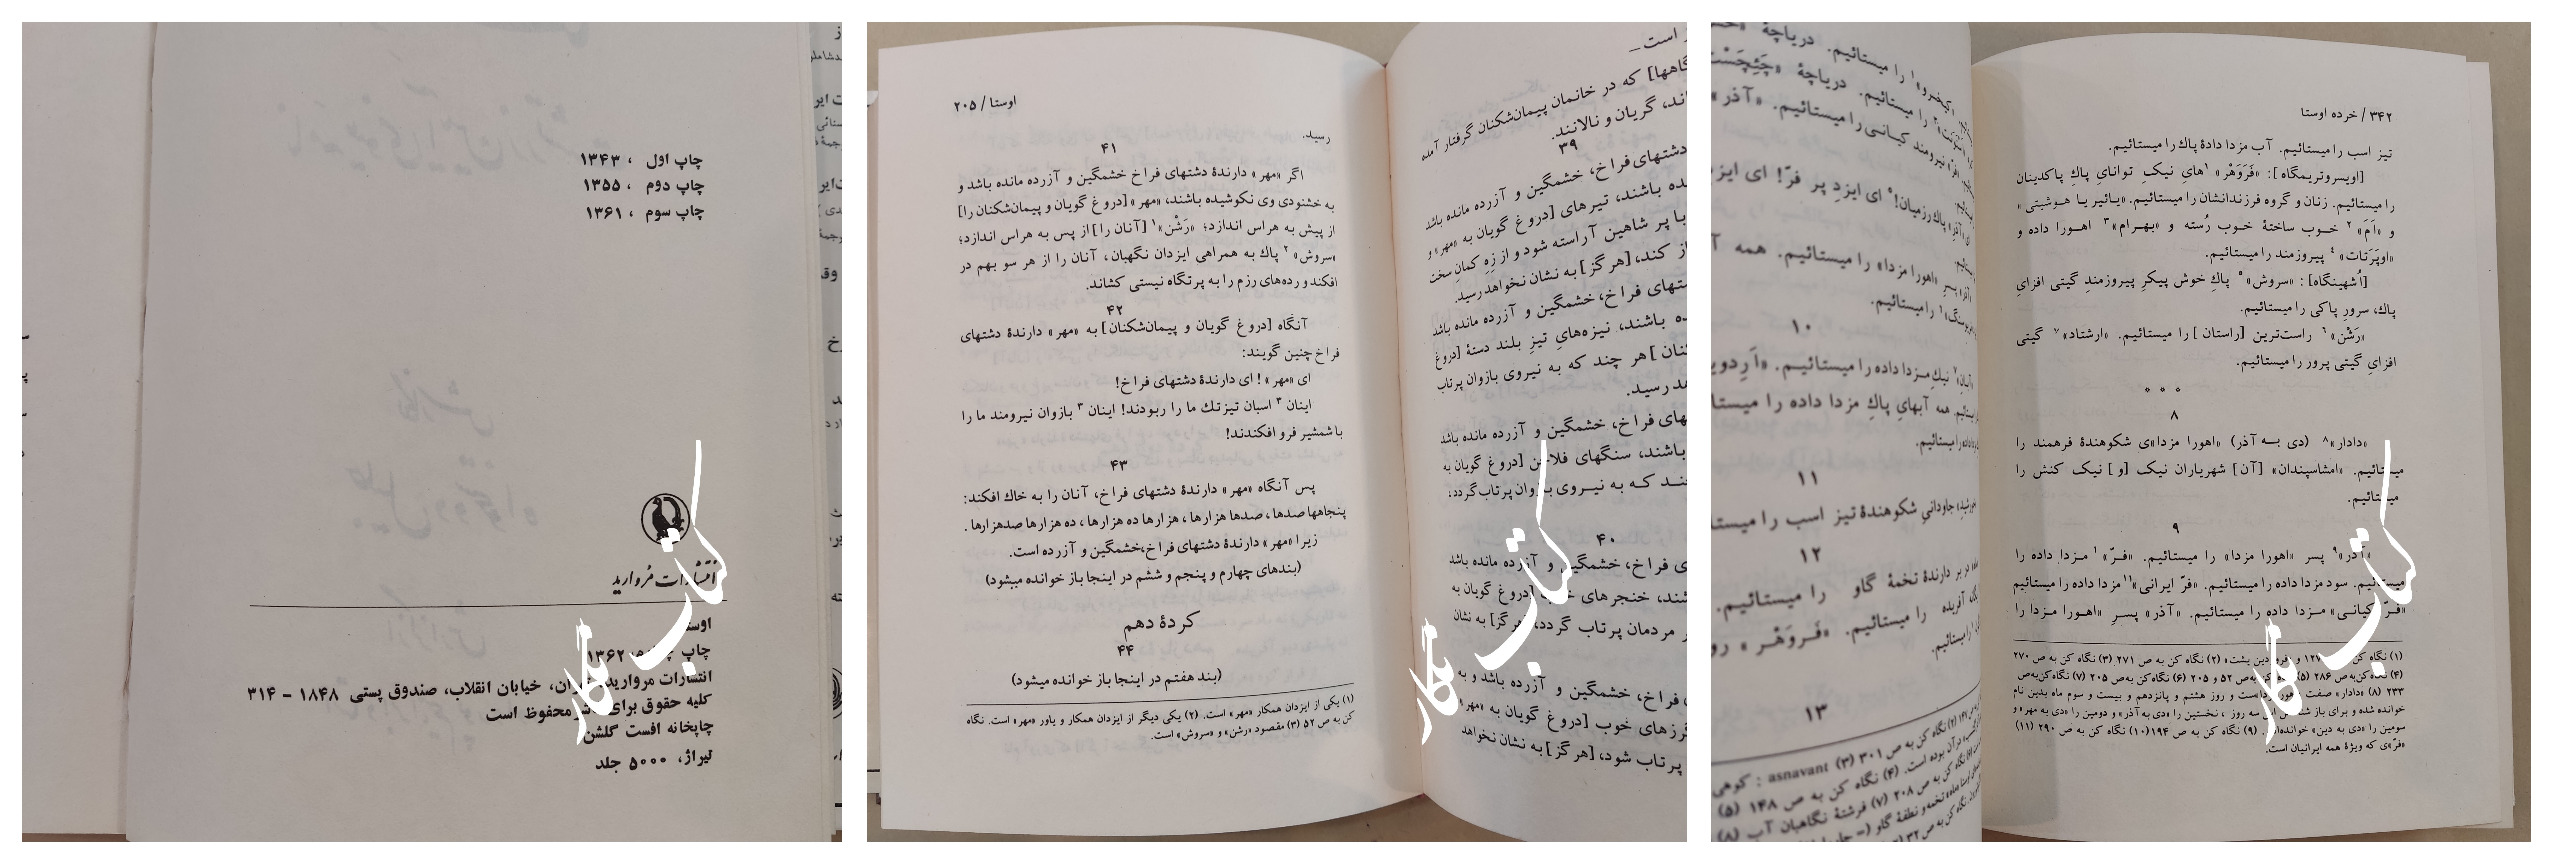 چاپ اول ، ۱۳۴۳
چاپ دوم ، ۱۳۵۵
چاپ سوم ، ۱۳۶۱
انتشارات مروارید
اوستا
چاپ ۱۳۶۲
انتشارات مروارید، خیابان انقلاب، صندوق پستی ۱۸۴۸ - ۳۱۴
کلیه حقوق برای محفوظ است
چاپخانه افست گلشن
تیراژ، ۵۰۰۰ جلد
کتاب نگار
اوستا / ۲۰۵
رسید.
۴۱
اگر «مهر» دارندهٔ دشتهای فراخ خشمگین و آزرده مانده باشد و
به خشنودی وی نکوشیده باشند، «مهر» [دروغ گویان و پیمان‌شکنان را]
از پیش به هراس اندازد؛ «رَشْن»۱ [آنان را] از پس به هراس اندازد؛
«سروش»۲ پاك به همراهی ایزدان نگهبان، آنان را از هر سو بهم در
افکند و رده‌های رزم را به پرتگاه نیستی کشاند.
۴۲
آنگاه [دروغ گویان و پیمان‌شکنان] به «مهر» دارندهٔ دشتهای
فراخ چنین گویند:
ای «مهر»! ای دارندهٔ دشتهای فراخ!
اینان۳ اسبان تیزتك ما را ربودند! اینان۳ بازوان نیرومند ما را
با شمشیر فرو افکندند!
۴۳
پس آنگاه «مهر» دارندهٔ دشتهای فراخ، آنان را به خاك افکند:
پنجاهها صدها، صدها هزارها، هزارها ده هزارها، ده هزارها صدهزارها.
زیرا «مهر» دارندهٔ دشتهای فراخ، خشمگین و آزرده است.
(بندهای چهارم و پنجم و ششم در اینجا باز خوانده میشود)
کردهٔ دهم
۴۴
(بند هفتم در اینجا باز خوانده میشود)
(۱) یکی از ایزدان همکار «مهر» است. (۲) یکی دیگر از ایزدان همکار و یاور «مهر» است. نگاه
کن به ص ۵۲ (۳) مقصود «رشن» و «سروش» است.
است_
گاهها] که در خانمان پیمان‌شکنان گرفتار آمده
ند، گریان و نالانند.
۳۹
دشتهای فراخ، خشمگین و آزرده مانده باشد
ده باشند، تیرهای [دروغ گویان به «مهر» و
با پر شاهین آراسته شود و از زِهِ کمانِ سخت
ز کند، [هرگز] به نشان نخواهد رسید.
شتهای فراخ، خشمگین و آزرده مانده باشد
ده باشند، نیزه‌هایِ تیزِ بلند دستهٔ [دروغ
کنان] هر چند که به نیروی بازوان پرتاب
هد رسید.
های فراخ، خشمگین و آزرده مانده باشد
باشند، سنگهای فلاخن [دروغ گویان به
چند که به نیروی بازوان پرتاب گردد،
۴۰
ی فراخ، خشمگین و آزرده مانده باشد
شند، خنجرهای خوب [دروغ گویان به
ر مردمان پرتاب گردد، [هرگز] به نشان
فراخ، خشمگین و آزرده مانده باشد و به
گرزهای خوب [دروغ گویان به «مهر»
پرتاب شود، [هرگز] به نشان نخواهد
کتاب نگار
را میستائیم. دریاچهٔ
را میستائیم. دریاچهٔ «چَئِچَسْت
نیرومند کیانی را میستائیم. «آذر»
پاك رزمیان! ای ایزدِ پر فرّ! ای ایزد
«اهورا مزدا» را میستائیم. همه
را میستائیم.
۱۰
نیكِ مزدا داده را میستائیم. «اَرِدوی
همه آبهایِ پاكِ مزدا داده را میستا
را میستائیم.
۱۱
جاودانیِ شکوهندهٔ تیز اسب را میستا
۱۲
در بر دارندهٔ تخمهٔ گاو را میستائیم.
آفریده را میستائیم. «فَروَهْر»
۱۳
نگاه کن به ص ۳۰۱ (۳) asnavant : کوهی
در آن بوده است. (۴) نگاه کن به ص ۱۴۸ (۵)
نگاه کن به ص ۲۰۸ (۷) فرشتهٔ نگاهبان آب (۸)
۳۴۲ / خرده اوستا
تیز اسب را میستائیم. آب مزدا دادهٔ پاك را میستائیم.
[اویسروتریمگاه]: «فَرَوَهْر»۱هایِ نیکِ توانایِ پاكِ پاکدینان
را میستائیم. زنان و گروه فرزندانشان را میستائیم. «یائیر یا هوشیتی»
و «اَمَ»۲ خوب ساختهٔ خوب رُسته و «بهرام»۳ اهورا داده و
«اوپَرَتات»۴ پیروزمند را میستائیم.
[اُشهینگاه]: «سروش»۵ پاكِ خوش پیکرِ پیروزمندِ گیتی افزایِ
پاك، سرورِ پاکی را میستائیم.
«رَشْن»۶ راست‌ترین [راستان] را میستائیم. «ارشتاد»۷ گیتی
افزایِ گیتی پرور را میستائیم.
* * *
۸
«دادار»۸ (دی به آذر) «اهورا مزدا»ی شکوهندهٔ فرهمند را
میستائیم. «امشاسپندان» [آن] شهریاران نیک [و] نیک کنش را
میستائیم.
۹
«آذر»۹ پسر «اهورا مزدا» را میستائیم. «فرّ»۱۰ مزدا داده را
میستائیم. سود مزدا داده را میستائیم. «فرّ ایرانی»۱۱ مزدا داده را میستائیم
«فرّ کیانی» مزدا داده را میستائیم. «آذر» پسرِ «اهورا مزدا را
(۱) نگاه کن ۱۲۷ و «فروردین یشت» (۲) نگاه کن به ص ۲۷۱ (۳) نگاه کن به ص ۲۷۰
(۴) نگاه کن به ص ۲۸۶ (۵) نگاه کن به ص ۵۲ و ۲۰۵ (۶) نگاه کن به ص ۲۰۵ (۷) نگاه کن به ص
۲۳۳ (۸) «دادار» صفت «اهورا مزدا»ست و روز هشتم و پانزدهم و بیست و سوم ماه بدین نام
خوانده شده و برای باز شناختن این سه روز ، نخستین را «دی به آذر» و دومین را «دی به مهر» و
سومین را «دی به دین» خوانده‌اند. (۹) نگاه کن به ص ۱۹۴ (۱۰) نگاه کن به ص ۲۹۰ (۱۱)
«فرّ»ی که ویژهٔ همه ایرانیان است.
کتاب نگار